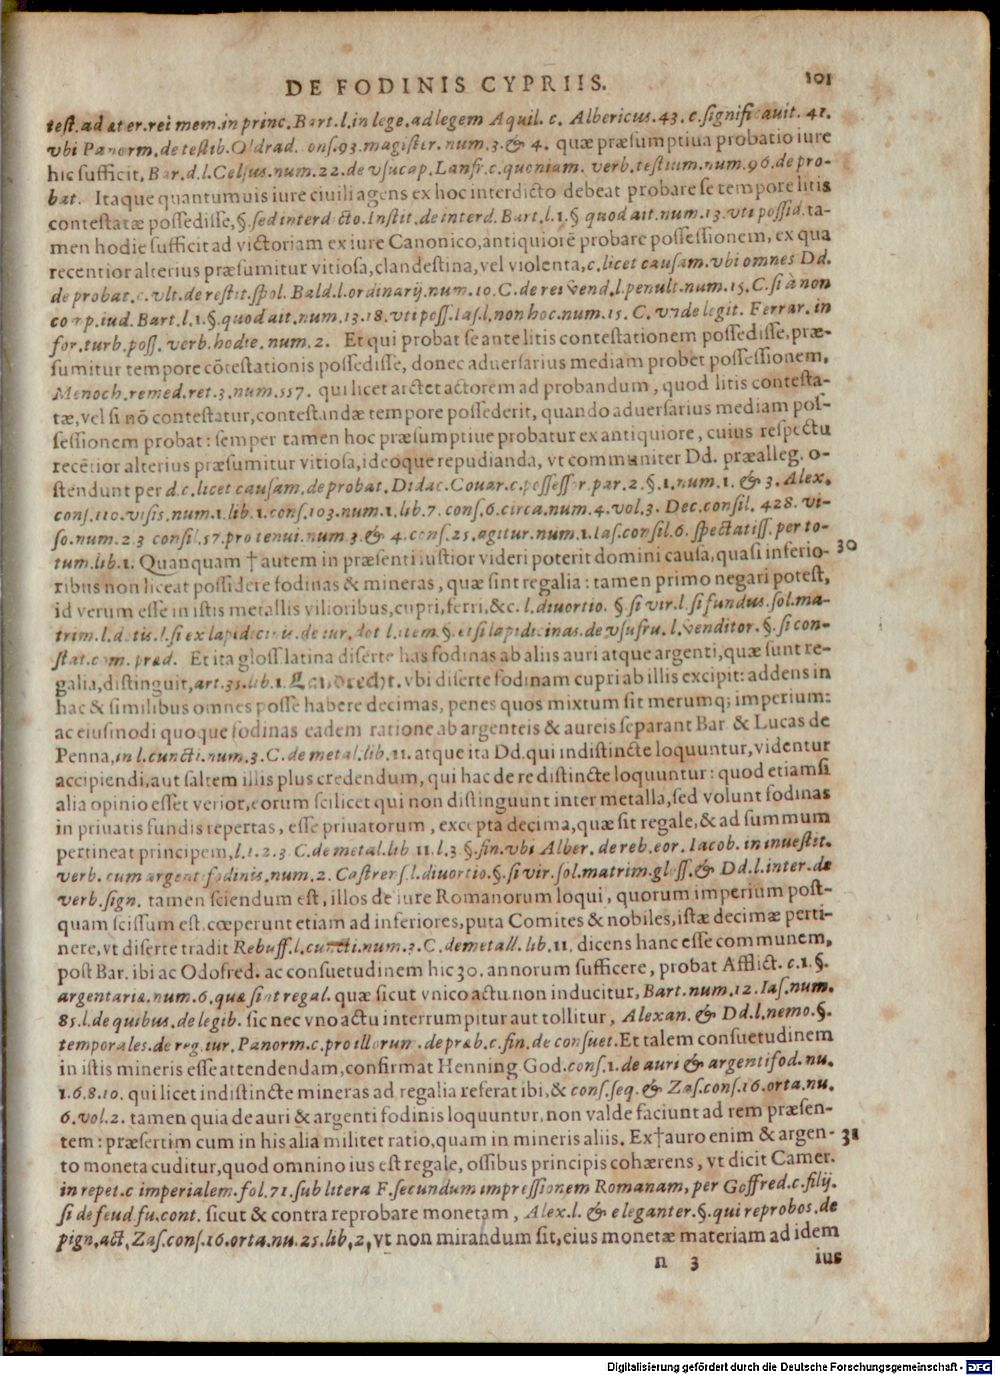 DE FODINIS CYPRIIS. 101
test. ad at er. rei mem. in princ. Bart. l. in lege. ad legem Aquil. c. Albericus. 43. c. significauit. 41.
vbi Panorm. de testib. Oldrad. cons. 93. magister. num. 3. & 4. quæ præsumptiua probatio iure
hic sufficit, Bar. d. l. Celsus. num. 22. de vsucap. Lanfr. c. quoniam. verb. testium. num. 96. de pro-
bat. Itaque quantumuis iure ciuili agens ex hoc interdicto debeat probare se tempore litis
contestatæ possedisse, §. sed interdicto. Instit. de interd. Bart. l. 1. § quod ait. num. 13. vti possid. ta-
men hodie sufficit ad victoriam ex iure Canonico, antiquiorē probare possessionem, ex qua
recentior alterius præsumitur vitiosa, clandestina, vel violenta, c. licet causam. vbi omnes Dd.
de probat. c. vlt. de restit. spol. Bald. l. ordinarij. num. 10. C. de rei vend. l. penult. num. 15. C. si à non
comp. iud. Bart. l. 1. §. quod ait. num. 13. 18. vti poss. Ias. l. non hoc. num. 15. C. vnde legit. Ferrar. in
for. turb. poss. verb. hodie. num. 2. Et qui probat se ante litis contestationem possedisse, præ-
sumitur tempore cōtestationis possedisse, donec aduersarius mediam probet possessionem,
Menoch. remed. ret. 3. num. 557. qui licet arctet actorem ad probandum, quod litis contesta-
tæ, vel si nō contestatur, contestandæ tempore possederit, quando aduersarius mediam pos-
sessionem probat: semper tamen hoc præsumptiue probatur ex antiquiore, cuius respectu
recētior alterius præsumitur vitiosa, ideoque repudianda, vt communiter Dd. præalleg. o-
stendunt per d. c. licet causam. de probat. Didac. Couar. c. possessor. par. 2. §. 1. num. 1. & 3. Alex.
cons. 110. visis. num. 1. lib. 1. cons. 103. num. 1. lib. 7. cons. 6. circa. num. 4. vol. 3. Dec. consil. 428. vi-
so. num. 2. 3 consil. 57. pro tenui. num. 3. & 4. cons. 25. agitur. num. 1. Ias. consil. 6. spectatiss. per to-
tum. lib. 1. Quanquam † autem in præsenti iustior videri poterit domini causa, quasi inferio- 30
ribus non liceat possidere fodinas & mineras, quæ sint regalia: tamen primo negari potest,
id verum esse in istis metallis vilioribus, cupri, ferri, &c. l. diuortio. §. si vir. l. si fundus. sol. ma-
trim. l. dotis. l. si ex lapidicinis. de iur. dot. l. item. §. et si lapidicinas. de vsufru. l. venditor. §. si con-
stat. com. præd. Et ita gloss latina diserte has fodinas ab aliis auri atque argenti, quæ sunt re-
galia, distinguit, art. 35. lib. 1. Landrecht. vbi diserte fodinam cupri ab illis excipit: addens in
hac & similibus omnes posse habere decimas, penes quos mixtum sit merumq; imperium:
ac eiusmodi quoque fodinas eadem ratione ab argenteis & aureis separant Bar & Lucas de
Penna, in l. cuncti. num. 3. C. de metal. lib. 11. atque ita Dd. qui indistincte loquuntur, videntur
accipiendi, aut saltem illis plus credendum, qui hac de re distincte loquuntur: quod etiamsi
alia opinio esset verior, eorum scilicet qui non distinguunt inter metalla, sed volunt fodinas
in priuatis fundis repertas, esse priuatorum, excepta decima, quæ sit regale, & ad summum
pertineat principem, l. 1. 2. 3 C. de metal. lib 11. l. 3 §. fin. vbi Alber. de reb. eor. Iacob. in inuestit.
verb. cum argent fodinis. num. 2. Castrens. l. diuortio. §. si vir. sol. matrim. gloss. & Dd. l. inter. de
verb. sign. tamen sciendum est, illos de iure Romanorum loqui, quorum imperium post-
quam scissum est, cœperunt etiam ad inferiores, puta Comites & nobiles, istæ decimæ perti-
nere, vt diserte tradit Rebuff. l. cuncti. num. 3. C. de metall. lib. 11. dicens hanc esse communem,
post Bar. ibi ac Odofred. ac consuetudinem hic 30. annorum sufficere, probat Afflict. c. 1. §.
argentariæ. num. 6. quæ sint regal. quæ sicut vnico actu non inducitur, Bart. num. 12. Ias. num.
85. l. de quibus. de legib. sic nec vno actu interrumpitur aut tollitur, Alexan. & Dd. l. nemo. §.
temporales. de reg. iur. Panorm. c. pro illorum. de præb. c. fin. de consuet. Et talem consuetudinem
in istis mineris esse attendendam, confirmat Henning God. cons. 1. de auri & argenti fod. nu.
1. 6. 8. 10. qui licet indistincte mineras ad regalia referat ibi, & cons. seq. & Zas. cons. 16. orta. nu.
6. vol. 2. tamen quia de auri & argenti fodinis loquuntur, non valde faciunt ad rem præsen-
tem: præsertim cum in his alia militet ratio, quam in mineris aliis. Ex † auro enim & argen- 31
to moneta cuditur, quod omnino ius est regale, ossibus principis cohærens, vt dicit Camer.
in repet. c imperialem. fol. 71. sub litera F. secundum impressionem Romanam, per Goffred. c. filij.
si de feud. fu. cont. sicut & contra reprobare monetam, Alex. l. & eleganter. §. qui reprobos. de
pign. act. Zas. cons. 16. orta. nu. 25. lib. 2. vt non mirandum sit, eius monetæ materiam ad idem
n 3 ius
Digitalisierung gefördert durch die Deutsche Forschungsgemeinschaft - DFG